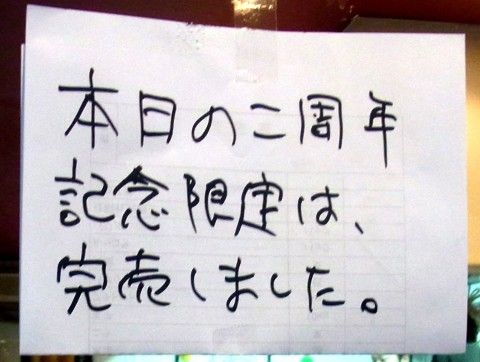 本日の二周年
記念限定は、
完売しました。